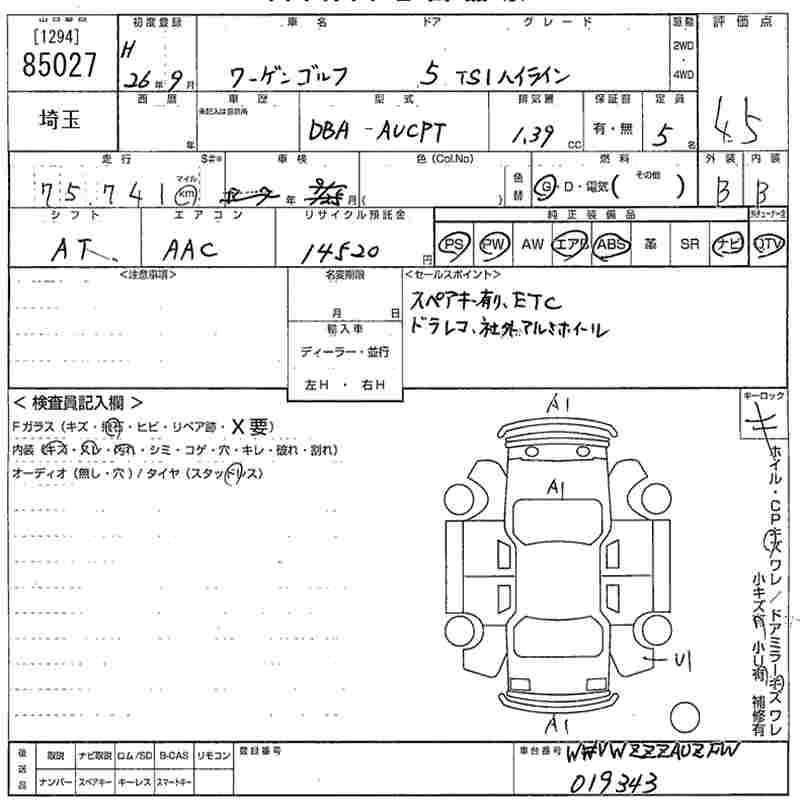 [1294]
85027
初度登録
車名
ドア
グレード
駆動
評価点
H
26年9月
ワーゲンゴルフ
5
TSIハイライン
2WD
・
4WD
4.5
埼玉
西暦
年
車歴
未記入は自家用
型式
DBA-AUCPT
排気量
1.39 CC
保証書
有・無
定員
5名
走行
S#*
車検
色(Col.No)
燃料
外装
内装
75.741
マイル
km
年
(
)
色替
G・D・電気(その他)
B
B
シフト
エアコン
リサイクル預託金
純正装備品
AT
AAC
14520円
PS
PW
AW
エアB
ABS
革
SR
ナビ
TV
<注意事項>
名変期限
月 日
輸入車
ディーラー・並行
左H・右H
<セールスポイント>
スペアキー有り、ETC
ドラレコ、社外アルミホイール
<検査員記入欄>
Fガラス(キズ・飛石・ヒビ・リペア跡・X要)
内装(キズ・スレ・汚れ・シミ・コゲ・穴・キレ・破れ・割れ)
オーディオ(無し・穴)/タイヤ(スタッドレス)
キーロック
キ
A1
A1
U1
A1
ホイル・CPキズワレ/ドアミラーキズワレ
小キズ有 小U有 補修有
後送品
取説
ナビ取説
ロム/SD
B-CAS
リモコン
ナンバー
スペアキー
キーレス
スマートキー
登録番号
車台番号
WVWZZZAUZFW
019343